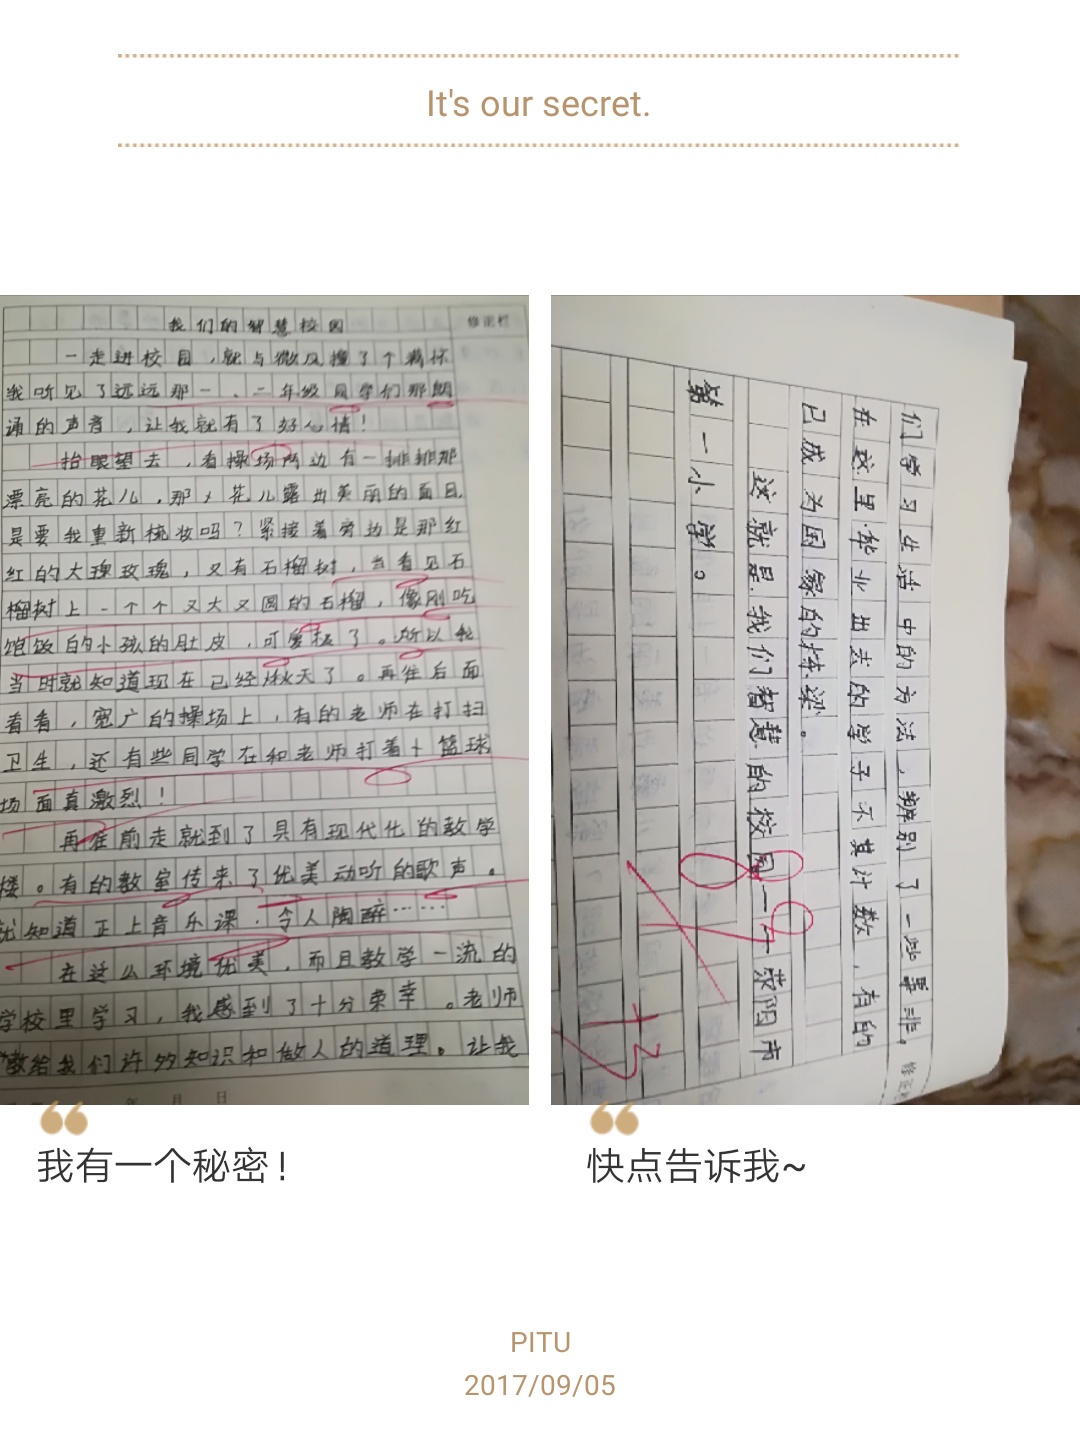 It's our secret.
我们的智慧校园
修正栏
一走进校园，就与微风撞了个满怀
我听见了远远那一、二年级同学们那朗
诵的声音，让我就有了好心情！
抬眼望去，看操场两边有一排排那
漂亮的花儿，那花儿露出美丽的面目，
是要我重新梳妆吗？紧接着旁边是那红
红的大瑰玫瑰，又有石榴树，当看见石
榴树上一个个又大又圆的石榴，像刚吃
饱饭的小孩的肚皮，可爱极了。所以我
当时就知道现在已经秋天了。再往后面
看看，宽广的操场上，有的老师在打扫
卫生，还有些同学在和老师打着篮球
场面真激烈！
再往前走就到了具有现代化的教学
楼。有的教室传来了优美动听的歌声。
就知道正上音乐课，令人陶醉……
在这么环境优美，而且教学一流的
学校里学习，我感到了十分荣幸。老师
教给我们许多知识和做人的道理。让我
年 月 日
们学习生活中的方法，辨别了一些事非。
在这里毕业出去的学子不其计数，有的
已成为国家的栋梁。
这就是我们智慧的校园——荥阳市
第一小学。
我有一个秘密！
快点告诉我~
PITU
2017/09/05